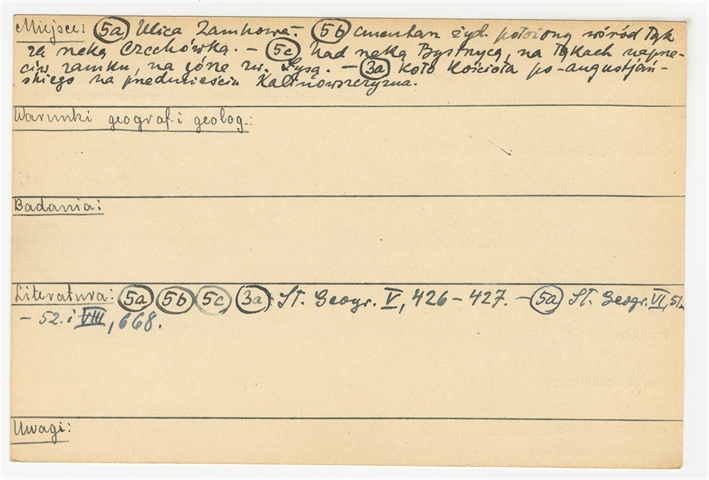 Miejsce: (5a) Ulica Zamkowa. (5b) cmentarz żyd. położony wśród łąk
za rzeką Czechówką. – (5c) nad rzeką Bystrzycą, na łąkach naprze-
ciw zamku, na górze zw. Łysą. – (3a) koło kościoła po-augustjań-
skiego na przedmieściu Kalinowszczyzna.
Warunki geograf. i geolog.:
Badania:
Literatura: (5a) (5b) (5c) (3a) Sł. Geogr. V, 426–427. – (5a) Sł. Geogr. VI, 51
– 52. i VIII, 668.
Uwagi: